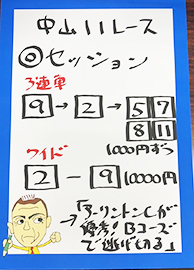 中山11レース
◎セッション
3連単
9→2→5 7
8 11
1000円ずつ
ワイド
2－9 10000円
→「アーリントンCが
優秀!Bコースで
逃げ切る」